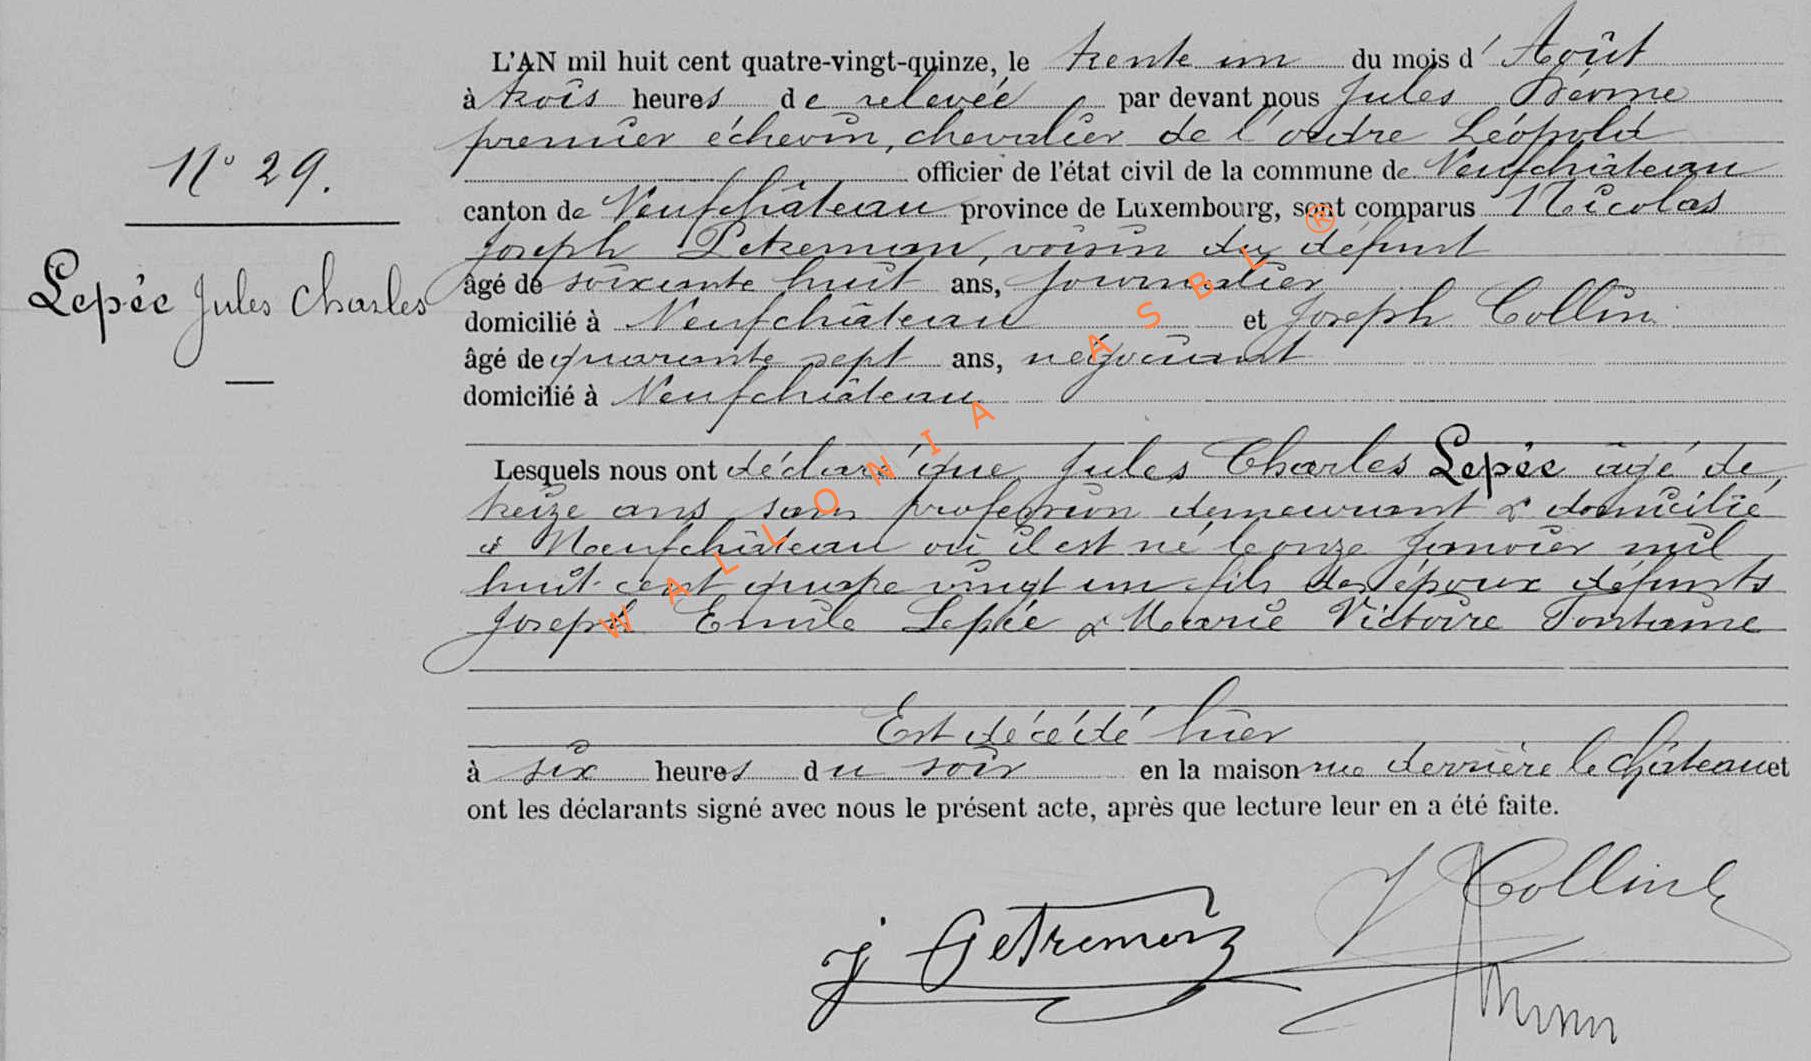 L'AN mil huit cent quatre-vingt-quinze, le trente un du mois d' Août
à trois heures de relevée par devant nous Jules
premier échevin, chevalier de l'ordre Léopold
N° 29.
officier de l'état civil de la commune de Neufchâteau
canton de Neufchâteau province de Luxembourg, sont comparus Nicolas
Joseph Petremen, voisin du défunt
Lepée Jules Charles
âgé de soixante huit ans, journalier
domicilié à Neufchâteau et Joseph Collin
âgé de quarante sept ans, négociant
domicilié à Neufchâteau
Lesquels nous ont déclaré que Jules Charles Lepée âgé de
treize ans sans profession demeurant & domicilié
à Neufchâteau où il est né le onze Janvier mil
huit cent quatre vingt un fils des époux défunts
Joseph Emile Lepée & Marie Victoire Fontaine
Est décédé hier
à six heures du soir en la maison rue derrière le château et
ont les déclarants signé avec nous le présent acte, après que lecture leur en a été faite.
J Collin
J
WALLONIA ASBL ®